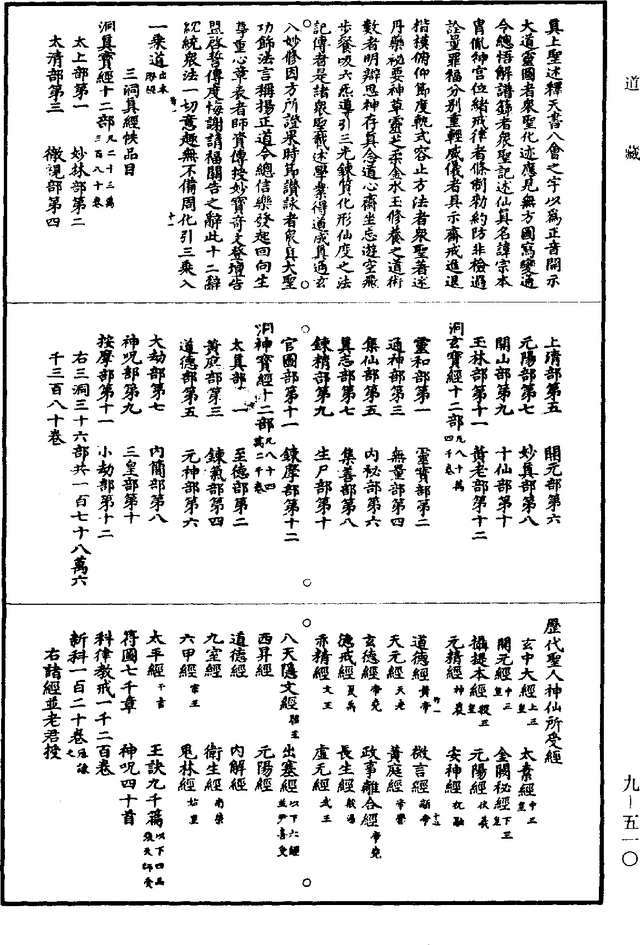 道藏
真上聖述釋天書八會之字以爲正音開示
大道靈圖者衆聖化迹應見無方圖寫變通
令總悟解譜籙者衆聖記述仙真名諱宗本
胄胤神宮位緒戒律者條制勑約防非檢過
詮量罪福分別重輕威儀者具示齋戒進退
楷模俯仰節度軌式容止方法者衆聖著述
丹藥祕要神草靈芝柔金水玉修養之道術
數者明辯思神存真念道心齋坐忘遊空飛
步餐吸六炁導引三光鍊質化形仙度之法
記傳者是諸衆聖載述學業得道成真通玄
入妙修因方所證果時節讚詠者衆真大聖
功飾法言稱揚正道令總信樂發起回向生
尊重心章表者師資傳授妙寶奇文登壇告
盟啓誓傳度悔謝請福關告之辭此十二辭
統衆法一切意趣無不備周化引三乘入
一乘道
三洞真經帙品目
洞真寶經十二部
太上部第一 妙林部第二
太清部第三 徹視部第四
上清部第五 開元部第六
元陽部第七 妙真部第八
開山部第九 十仙部第十
玉林部第十一 黃老部第十二
洞玄寶經十二部凡八十萬四千卷
靈和部第一 靈寶部第二
通神部第三 無量部第四
集仙部第五 內祕部第六
真志部第七 集善部第八
鍊精部第九 生尸部第十
官圖部第十一 鍊摩部第十二
洞神寶經十二部
太真部一 至德部第二
黃庭部第三 鍊氣部第四
道德部第五 元神部第六
大劫部第七 內簡部第八
神呪部第九 三皇部第十
按摩部第十一 小劫部第十二
右三洞三十六部共一百七十八萬六
千三百八十卷
歷代聖人神仙所受經
玄中大經上三皇 太素經中三皇
開元經中三皇 金闕秘經下三皇
攝提本經 元陽經伏羲
元精經神農 安神經祝融
道德經黃帝 微言經顓帝
天元經天老 黃庭經帝嚳
玄德經帝堯 政事離合經帝堯
德戒經夏禹 長生經殷湯
赤精經文王 虛元經武王
八天隱文經 出塞經以下六經並尹喜受
西昇經 元陽經
道德經 內解經
九室經 衛生經南榮
六甲經 鬼林經
太平經干吉 王訣九千篇
符圖七千章 神呪四十首
科律教戒一千二百卷
新科一百二十卷
右諸經並老君授
九—五一〇